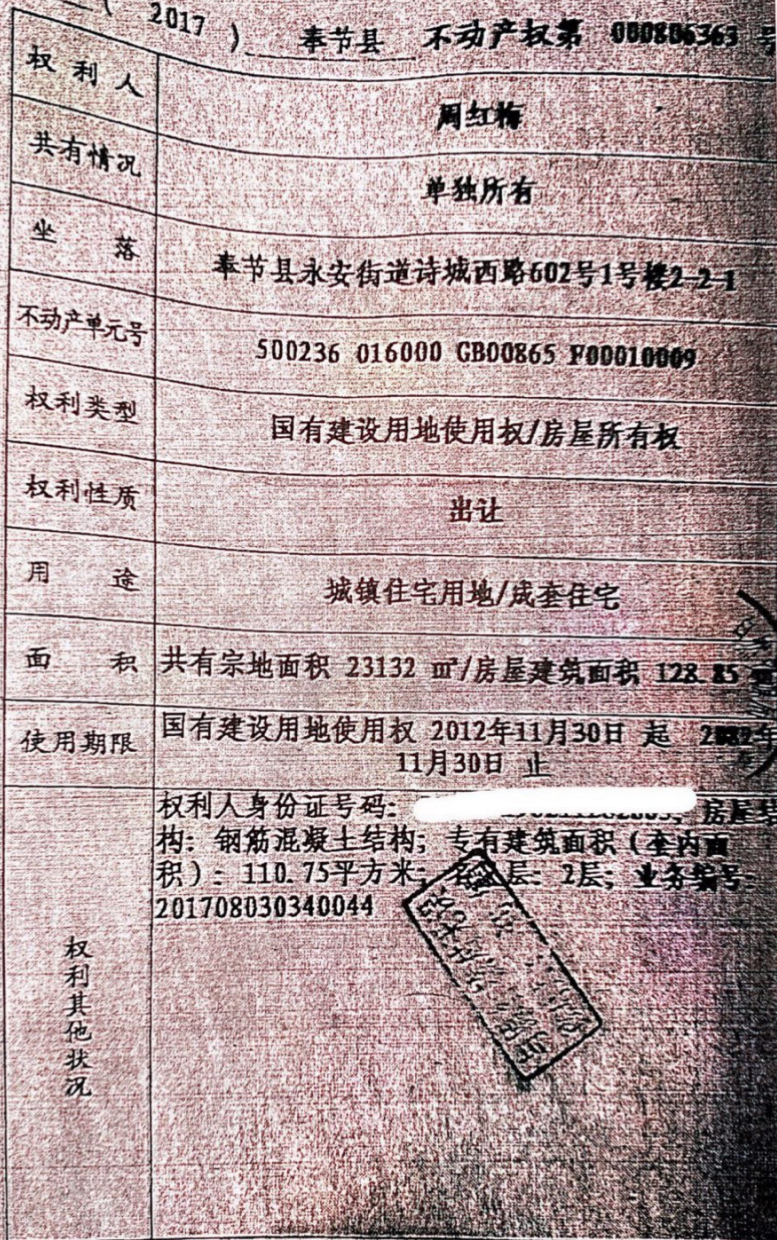 ( 2017 ) 奉节县 不动产权第 000806363 号
权利人 周红梅
共有情况 单独所有
坐落 奉节县永安街道诗城西路602号1号楼2-2-1
不动产单元号 500236 016000 GB00865 F00010009
权利类型 国有建设用地使用权/房屋所有权
权利性质 出让
用途 城镇住宅用地/成套住宅
面积 共有宗地面积 23132 ㎡/房屋建筑面积 128.85
使用期限 国有建设用地使用权 2012年11月30日 起 2082年
11月30日 止
权利其他状况
权利人身份证号码: 房屋结
构: 钢筋混凝土结构; 专有建筑面积(套内面
积): 110.75平方米; 层: 2层; 业务编号:
201708030340044